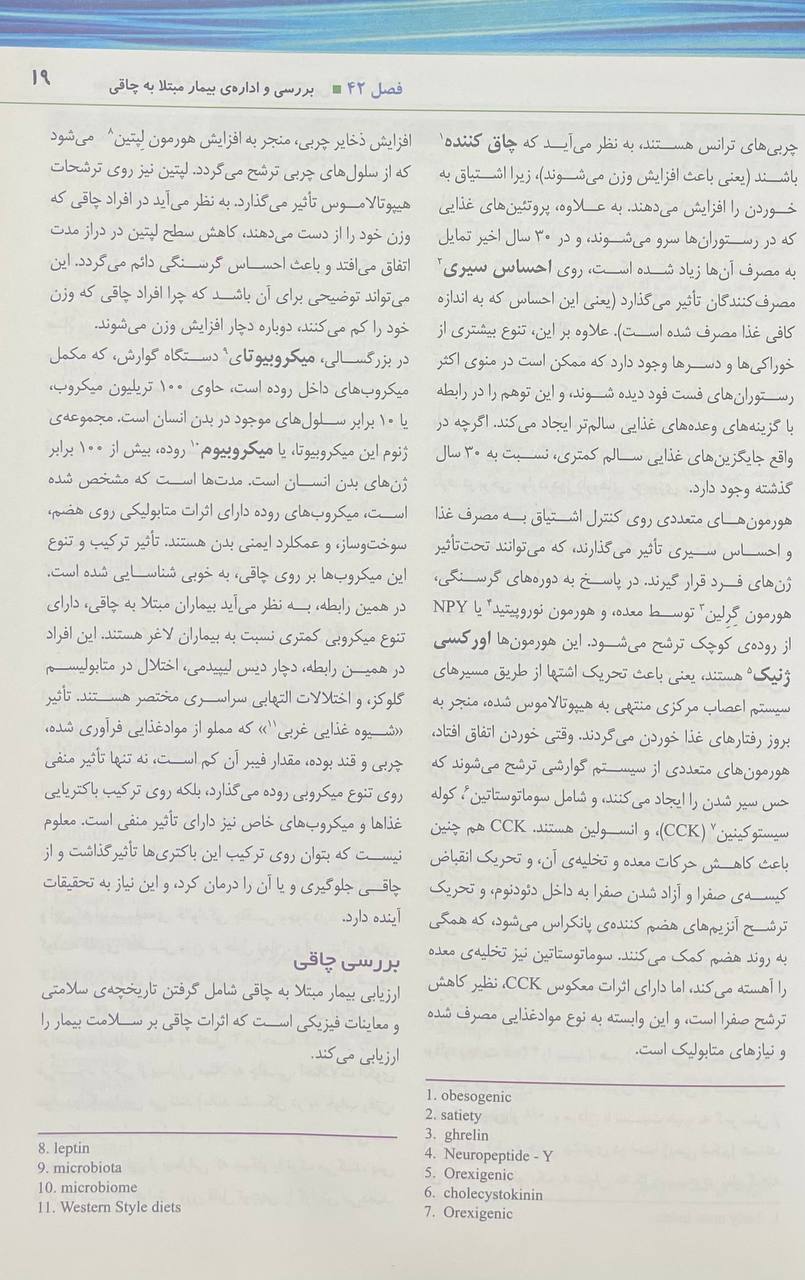 فصل ۴۲ ■ بررسی و اداره‌ی بیمار مبتلا به چاقی
۱۹
چربی‌های ترانس هستند، به نظر می‌آیــد که چاق کننده۱
باشــند (یعنی باعث افزایش وزن می‌شــوند)، زیرا اشــتیاق به
خــوردن را افزایش می‌دهند. به عــلاوه، پروتئین‌های غذایی
که در رســتوران‌ها سرو می‌شــوند، و در ۳۰ سال اخیر تمایل
به مصرف آن‌ها زیاد شــده اســت، روی احساس سیری۲
مصرف‌کنندگان تأثیر می‌گذارد (یعنی این احساس که به اندازه
کافی غذا مصرف شده است). علاوه بر این، تنوع بیشتری از
خوراکی‌ها و دســرها وجود دارد که ممکن است در منوی اکثر
رســتوران‌های فست فود دیده شــوند، و این توهم را در رابطه
با گزینه‌های وعده‌های غذایی سالم‌تر ایجاد می‌کند. اگرچه در
واقع جایگزین‌های غذایی ســالم کمتری، نسبت به ۳۰ سال
گذشته وجود دارد.
هورمون‌هــای متعددی روی کنترل اشــتیاق بــه مصرف غذا
و احســاس ســیری تأثیر می‌گذارند، که می‌توانند تحت‌تأثیر
ژن‌های فــرد قرار گیرند. در پاســخ به دوره‌های گرســنگی،
هورمون گرِلین۳ توســط معده، و هورمون نوروپپتید۴ یا NPY
از روده‌ی کوچک ترشح می‌شــود. این هورمون‌ها اورکسی
ژنیک۵ هستند، یعنی باعث تحریک اشتها از طریق مسیرهای
سیستم اعصاب مرکزی منتهی به هیپوتالاموس شده، منجر به
بروز رفتارهای غذا خوردن می‌گردند. وقتی خوردن اتفاق افتاد،
هورمون‌های متعددی از سیســتم گوارشی ترشح می‌شوند که
حس سیر شدن را ایجاد می‌کنند، و شامل سوماتوستاتین۶، کوله
سیستوکینین۷ (CCK)، و انســولین هستند. CCK هم چنین
باعث کاهــش حرکات معده و تخلیه‌ی آن، و تحریک انقباض
کیســه‌ی صفرا و آزاد شدن صفرا به داخل دئودنوم، و تحریک
ترشــح آنزیم‌های هضم کننده‌ی پانکراس می‌شود، که همگی
به روند هضم کمک می‌کنند. سوماتوستاتین نیز تخلیه‌ی معده
را آهسته می‌کند، اما دارای اثرات معکوس CCK، نظیر کاهش
ترشح صفرا است، و این وابسته به نوع موادغذایی مصرف شده
و نیازهای متابولیک است.
1. obesogenic
2. satiety
3. ghrelin
4. Neuropeptide - Y
5. Orexigenic
6. cholecystokinin
7. Orexigenic
افزایش ذخایر چربی، منجر به افزایش هورمون لِپتین۸ می‌شود
که از سلول‌های چربی ترشح می‌گردد. لپتین نیز روی ترشحات
هیپوتالامــوس تأثیر می‌گذارد. به نظر می‌آید در افراد چاقی که
وزن خود را از دست می‌دهند، کاهش سطح لپتین در دراز مدت
اتفاق می‌افتد و باعث احســاس گرســنگی دائم می‌گردد. این
می‌تواند توضیحی برای آن باشــد که چرا افراد چاقی که وزن
خود را کم می‌کنند، دوباره دچار افزایش وزن می‌شوند.
در بزرگســالی، میکروبیوتای۹ دستگاه گوارش، که مکمل
میکروب‌های داخل روده است، حاوی ۱۰۰ تریلیون میکروب،
یا ۱۰ برابر ســلول‌های موجود در بدن انسان است. مجموعه‌ی
ژنوم این میکروبیوتا، یا میکروبیوم۱۰ روده، بیش از ۱۰۰ برابر
ژن‌های بدن انســان است. مدت‌ها است که مشخص شده
اســت، میکروب‌های روده دارای اثرات متابولیکی روی هضم،
سوخت‌وساز، و عمکلرد ایمنی بدن هستند. تأثیر ترکیب و تنوع
این میکروب‌ها بر روی چاقی، به خوبی شناســایی شده است.
در همین رابطه، بــه نظر می‌آید بیماران مبتلا به چاقی، دارای
تنوع میکروبی کمتری نسبت به بیماران لاغر هستند. این افراد
در همیــن رابطه، دچار دیس لیپیدمی، اختلال در متابولیســم
گلوکز، و اختلالات التهابی سراســری مختصر هســتند. تأثیر
«شــیوه غذایی غربی۱۱» که مملو از موادغذایی فرآوری شده،
چربی و قند بوده، مقدار فیبر آن کم اســت، نه تنها تأثیر منفی
روی تنوع میکروبی روده می‌گذارد، بلکه روی ترکیب باکتریایی
غذاها و میکروب‌های خاص نیز دارای تأثیر منفی است. معلوم
نیســت که بتوان روی ترکیب این باکتری‌ها تأثیرگذاشت و از
چاقــی جلوگیری و یا آن را درمان کرد، و این نیاز به تحقیقات
آینده دارد.
بررسی چاقی
ارزیابی بیمار مبتلا به چاقی شامل گرفتن تاریخچه‌ی سلامتی
و معاینات فیزیکی اســت که اثرات چاقی بر ســلامت بیمار را
ارزیابی می‌کند.
8. leptin
9. microbiota
10. microbiome
11. Western Style diets